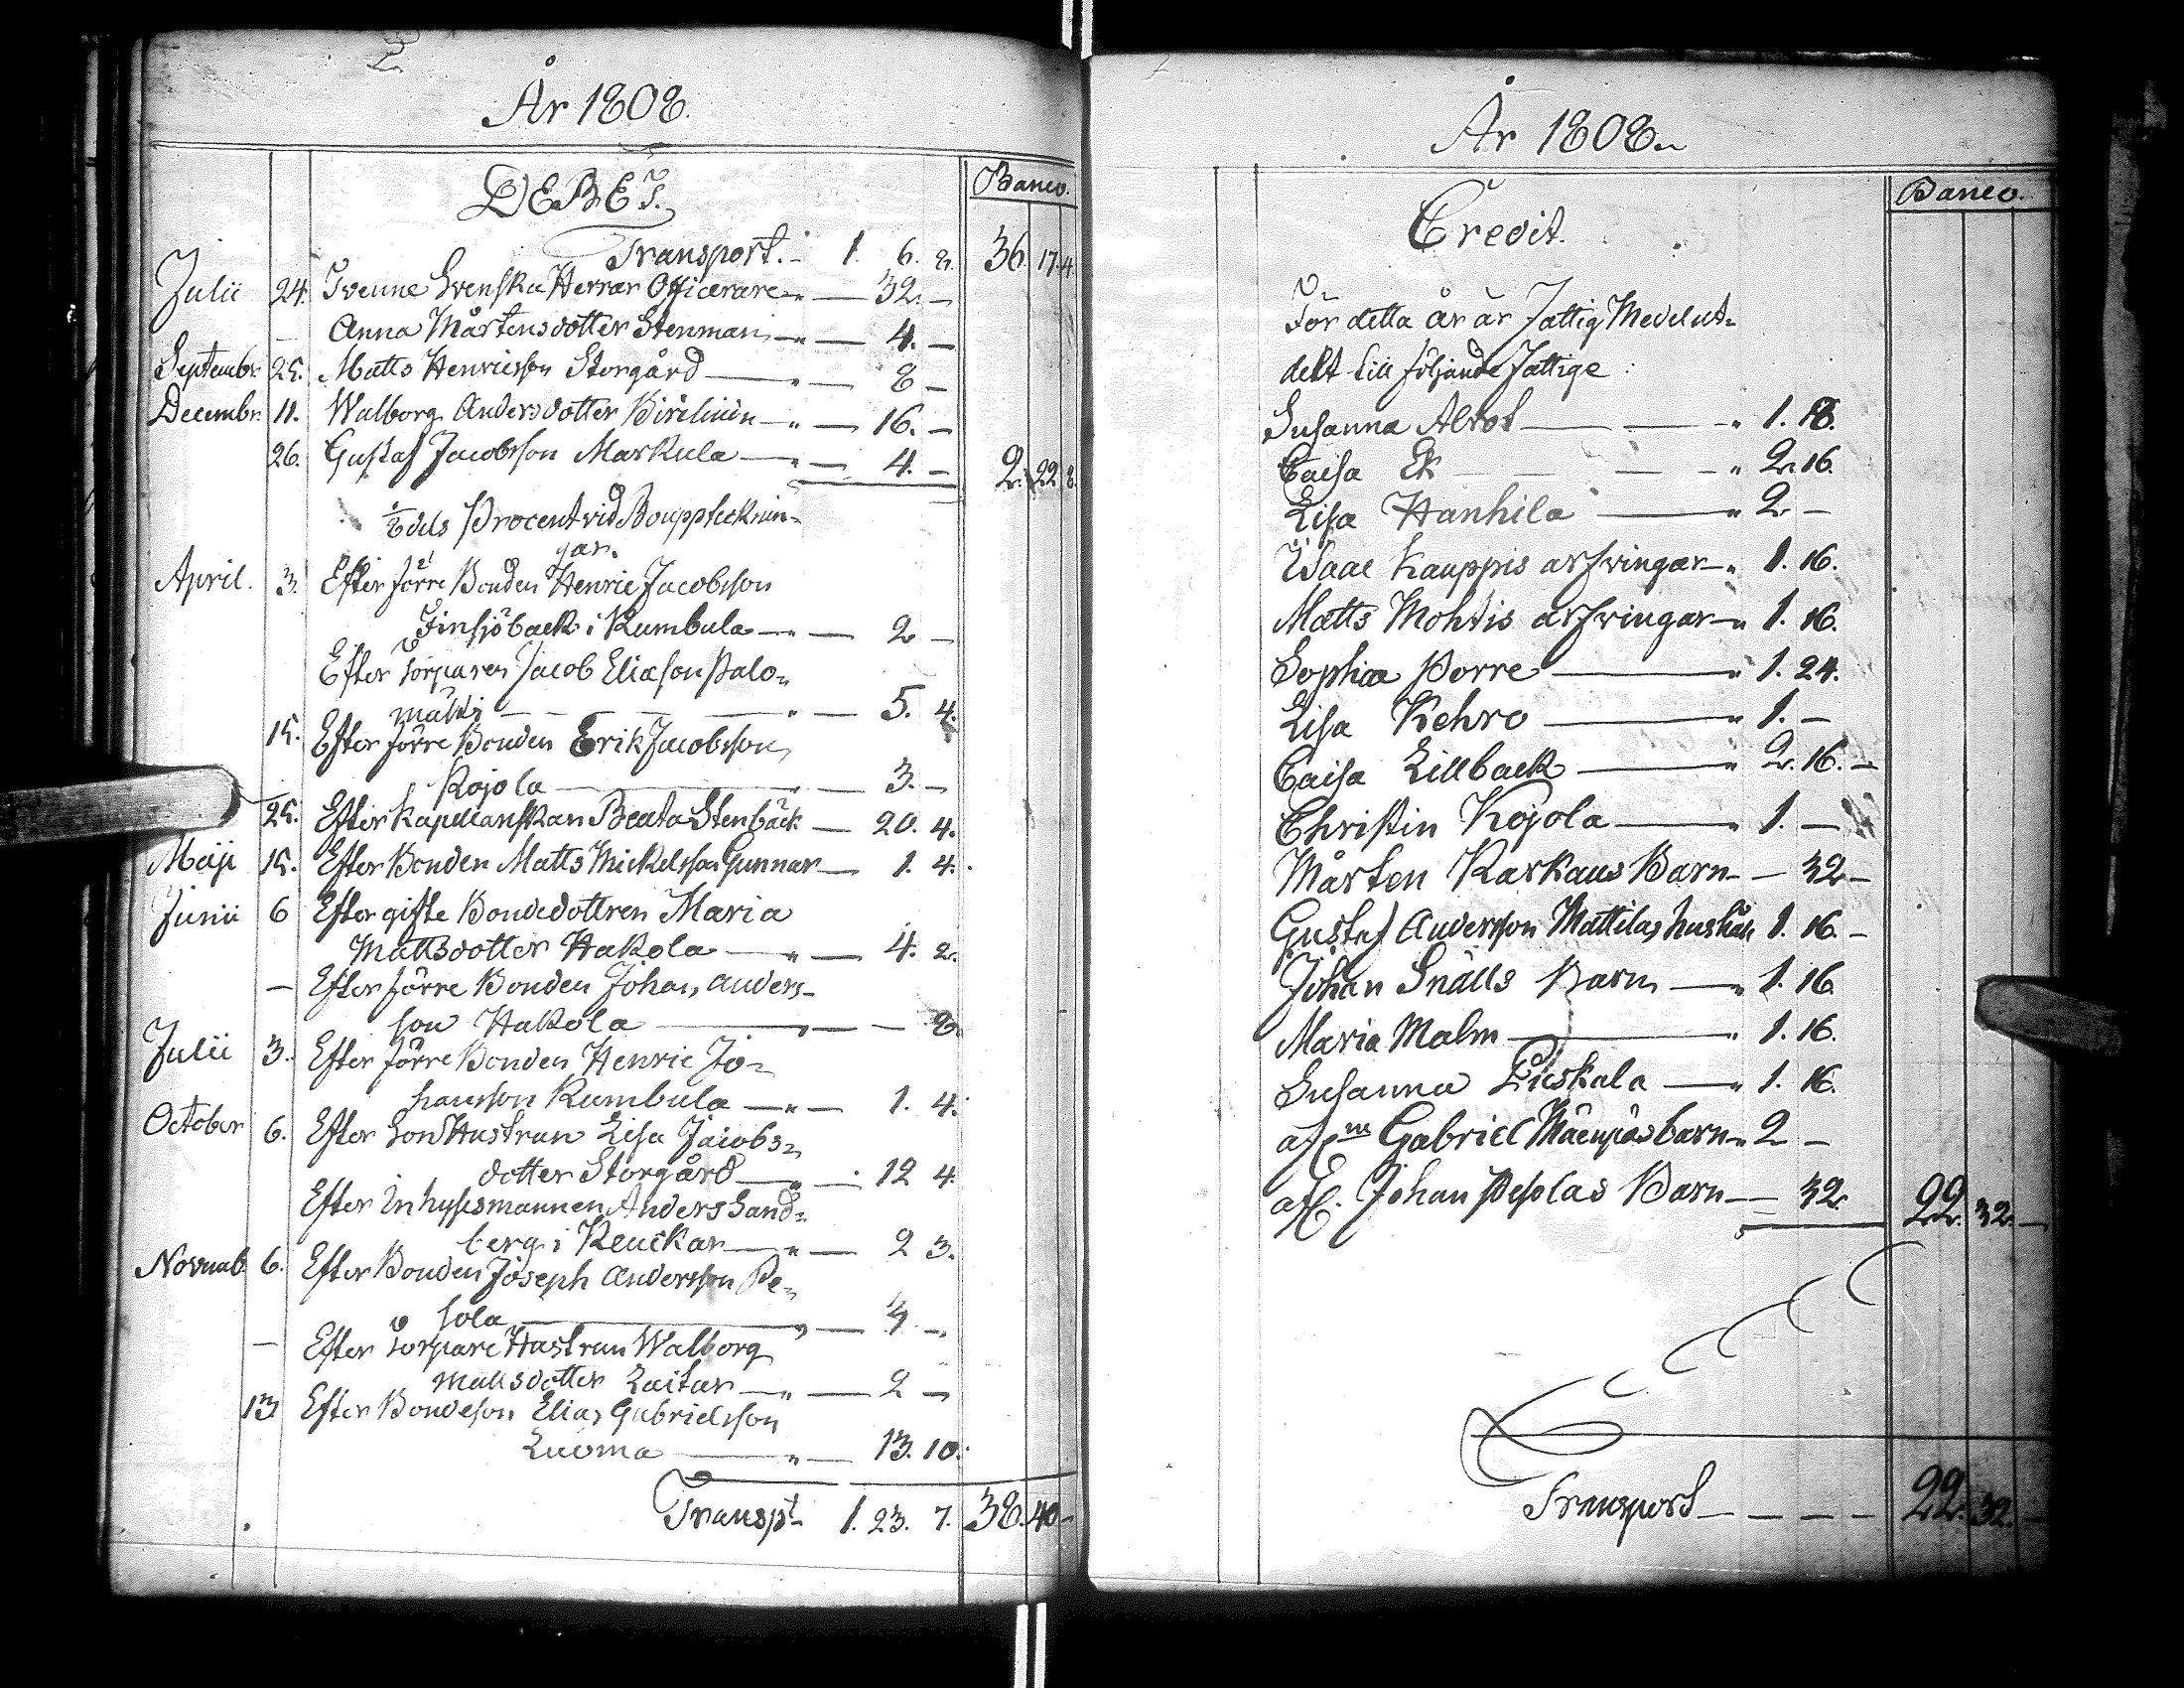 År 1808.
DEBET.
Banco.
Transport. 1. 6. 8. 36. 17. 4.
Julii 24. Tvenne Svenska Herrar Officerare — 32. —
— Anna Mårtensdotter Stenman — 4. —
Septembr. 25. Matts Henricsson Storgård — 8 —
Decembr. 11. Walborg Andersdotter — 16. —
26. Gustaf Jacobsson Markula — 4. — 2. 22. 8.
1/8 dels Procent vid Boupptecknin-
gar.
April. 3. Efter förre Bonden Henric Jacobsson
Finsjöback i Rumbula — 2 —
Efter Torparen Jacob Eliasson Palo-
mäki — 5. 4.
15. Efter förre Bonden Erik Jacobsson
Kojola — 3. —
25. Efter Kapellanskan Beata Stenbäck — 20. 4.
Maji 15. Efter Bonden Matts Mickelsson Gunnar — 1. 4.
Junii 6 Efter gifte Bondedottren Maria
Mattsdotter Hakola — 4. 2.
— Efter förre Bonden Johan Anders-
son Hakola — — 8.
Julii 3. Efter förre Bonden Henric Jo-
hansson Rumbula — 1. 4.
October 6. Efter Sonhustrun Lisa Jacobs-
dotter Storgård — 12 4.
Efter Inhysesmannen Anders Sand-
berg i — 2 3.
Novemb. 6. Efter Bonden Joseph Andersson Pe-
sola — 4 —
— Efter Torpare Hustrun Walborg
Mattsdotter Laitar — 2 —
13 Efter Bondeson Elias Gabrielsson
Luoma — 13. 10.
Transpt. 1. 23. 7. 38. 40 —
År 1808.
Credit.
Banco.
För detta år är Fattig Medel ut-
delt till följande Fattige:
Susanna — 1. 18.
Caisa Ek — 2. 16.
Lisa Hanhila — 2. —
Isaac Kauppis arfvingar — 1. 16.
Matts Mohtis arfvingar — 1. 16.
Sophia Porre — 1. 24.
Lisa Kehro — 1. —
Caisa Lillback — 2. 16. —
Christin Kojola — 1. —
Mårten Karkaus Barn — 32 —
Gustaf Andersson Mattilas 1. 16. —
Johan Snälls Barn — 1. 16.
Maria Malm — 1. 16.
Susanna — 1. 16.
Gabriel Mäenpäs barn 2 —
Johan Pesolas Barn — 32. 22. 32. —
Transport — — — — 22. 32. —